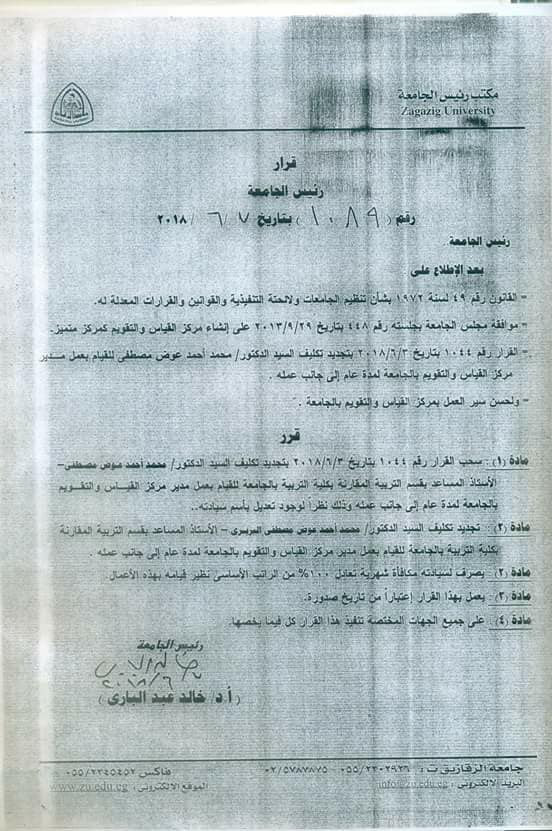 مكتب رئيس الجامعة
Zagazig University
قرار
رئيس الجامعة
رقم (١٠٨٩) بتاريخ ٦/٧/ ٢٠١٨
رئيس الجامعة
بعد الإطلاع على
- القانون رقم ٤٩ لسنة ١٩٧٢ بشأن تنظيم الجامعات ولائحتة التنفيذية والقوانين والقرارات المعدلة له.
- موافقة مجلس الجامعة بجلسته رقم ٤٤٨ بتاريخ ٢٠١٣/٩/٢٩ على إنشاء مركز القياس والتقويم كمركز متميز.
- القرار رقم ١٠٤٤ بتاريخ ٢٠١٨/٦/٣ بتجديد تكليف السيد الدكتور/ محمد أحمد عوض مصطفى للقيام بعمل مدير
مركز القياس والتقويم بالجامعة لمدة عام إلى جانب عمله .
- ولحسن سير العمل بمركز القياس والتقويم بالجامعة .
قرر
مادة (١) : سحب القرار رقم ١٠٤٤ بتاريخ ٢٠١٨/٦/٣ بتجديد تكليف السيد الدكتور/ محمد أحمد عوض مصطفى–
الأستاذ المساعد بقسم التربية المقارنة بكلية التربية بالجامعة للقيام بعمل مدير مركز القياس والتقويم
بالجامعة لمدة عام إلى جانب عمله وذلك نظراً لوجود تعديل بأسم سيادته..
مادة (٢) : تجديد تكليف السيد الدكتور/ محمد أحمد عوض مصطفى البربرى – الأستاذ المساعد بقسم التربية المقارنة
بكلية التربية بالجامعة للقيام بعمل مدير مركز القياس والتقويم بالجامعة لمدة عام إلى جانب عمله .
مادة (٢) : يصرف لسيادته مكافأة شهرية تعادل ١٠٠% من الراتب الأساسى نظير قيامه بهذه الأعمال
مادة (٣) : يعمل بهذا القرار إعتباراً من تاريخ صدورة.
مادة (٤) : على جميع الجهات المختصة تنفيذ هذا القرار كل فيما يخصها.
رئيس الجامعة
(أ.د/ خالد عبد البارى )
جامعة الزقازيق ت : ٠٥٥/٢٣٠٢٩٣٦ - ٠٢/٥٧٨٧٨٧٥ فاكس ٠٥٥/٢٣٤٥٤٥٢
البريد الالكترونى : info@zu.edu.eg الموقع الالكترونى : www.zu.edu.eg